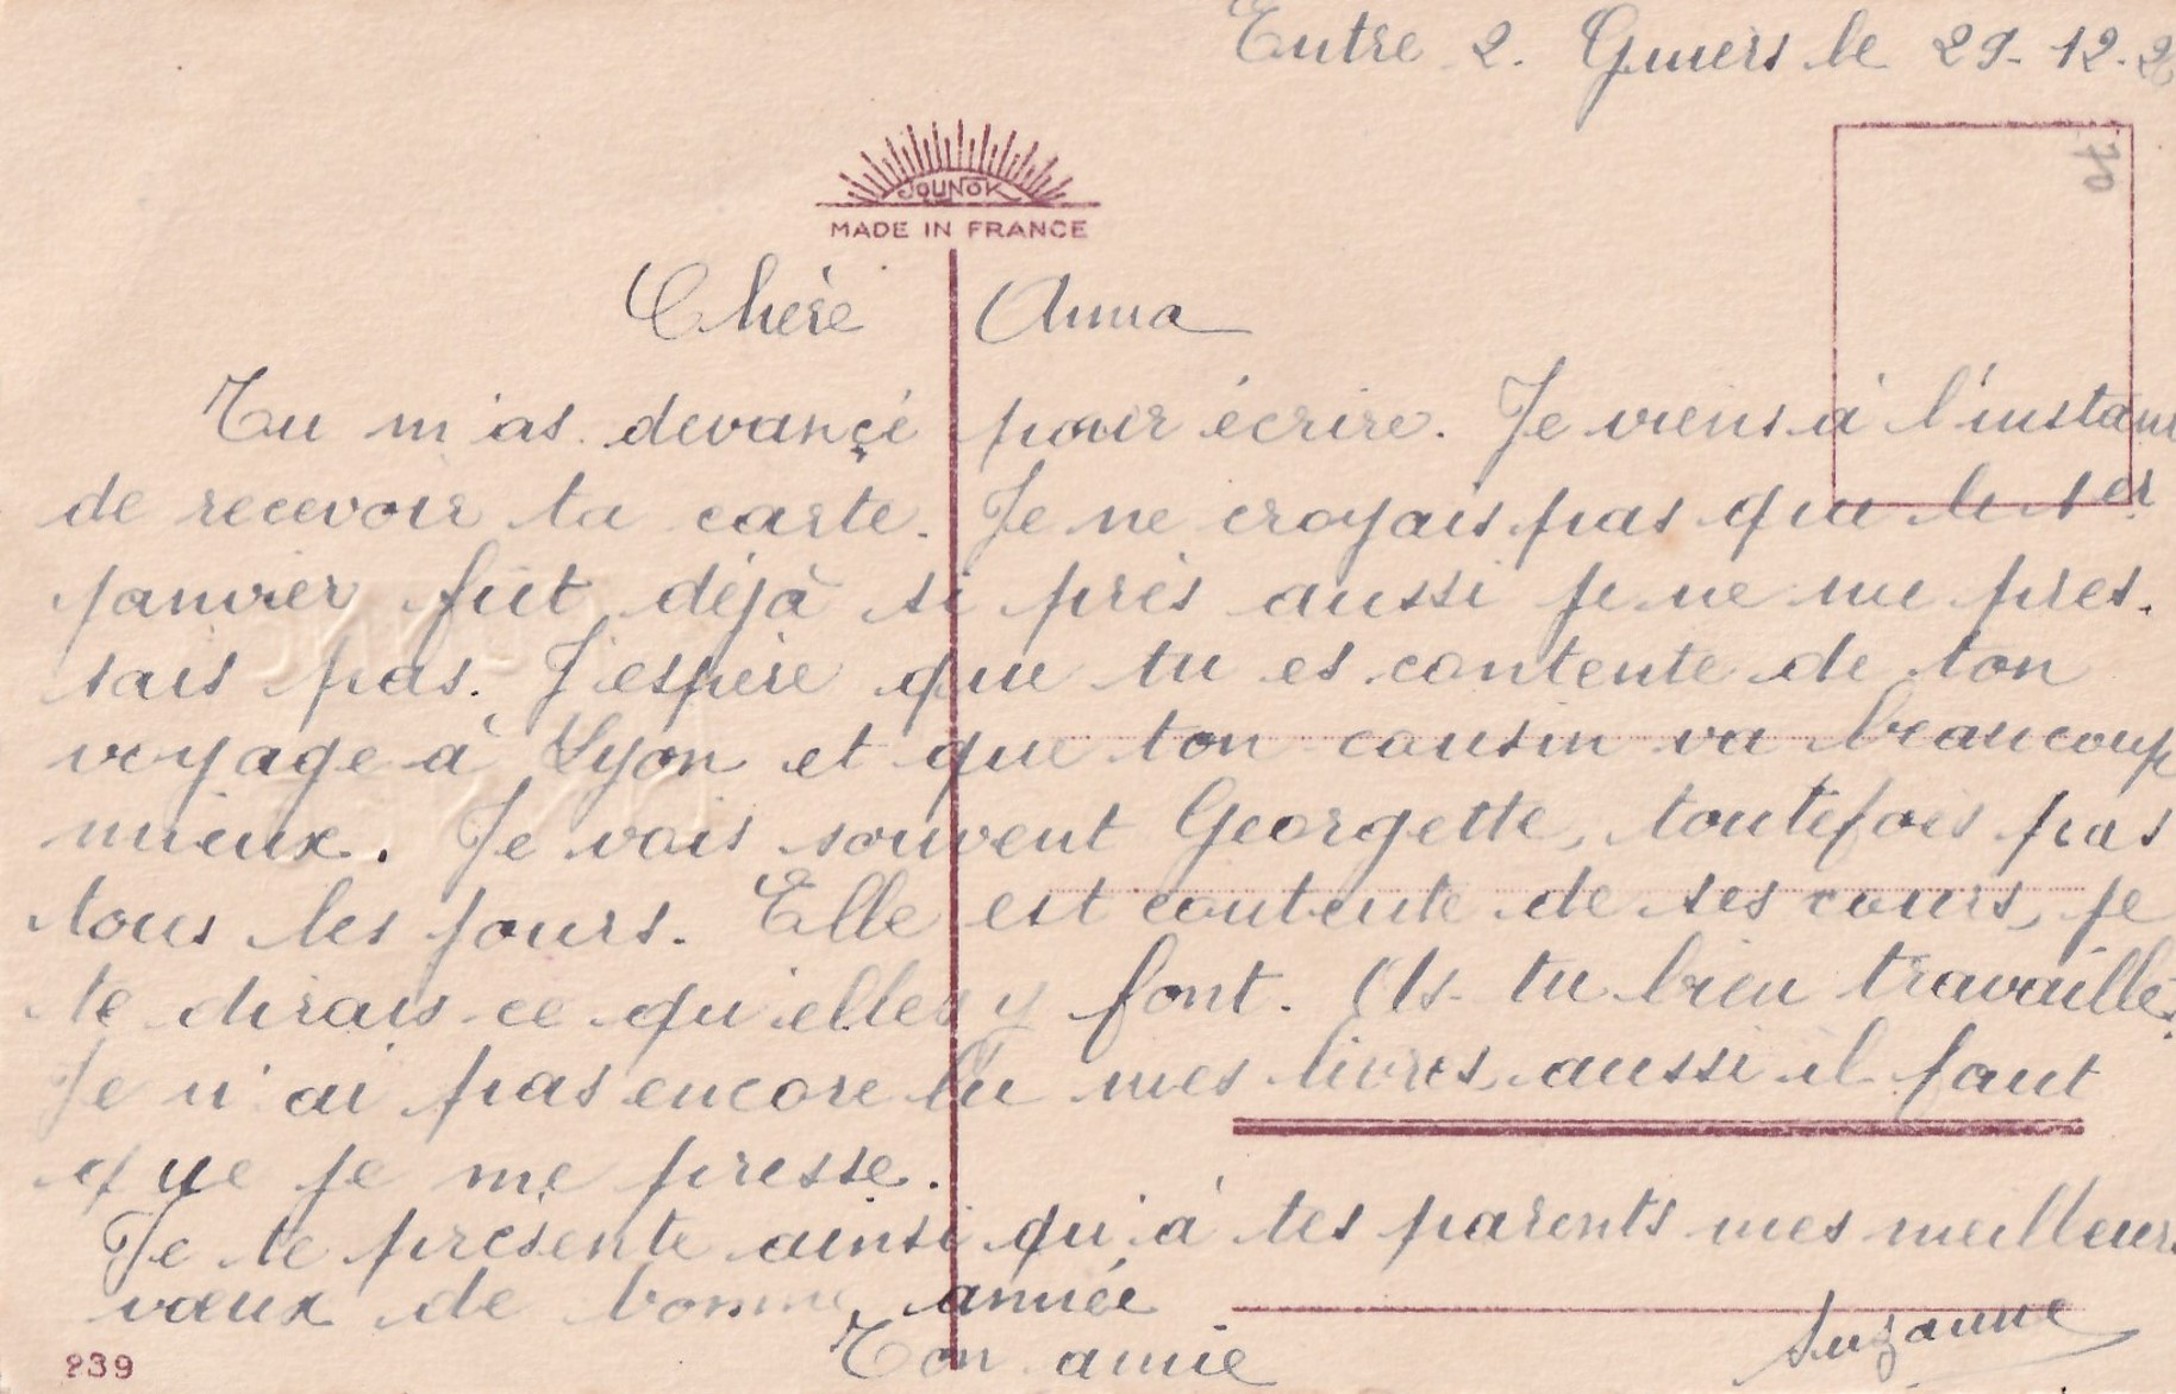 Entre 2. Guiers le 29-12-2
JOUNOK
MADE IN FRANCE
Chère Anna
Tu m'as devançé pour écrire. Je viens à l'instant
de recevoir ta carte. Je ne croyais pas que le 1er
janvier fût déjà si près aussi je ne me pres-
sais pas. J'espère que tu es contente de ton
voyage à Lyon et que ton cousin va beaucoup
mieux. Je vois souvent Georgette, toutefois pas
tous les jours. Elle est contente de ses cours, je
te dirais ce qu'elles y font. As-tu bien travaillé.
Je n'ai pas encore lu mes livres aussi il faut
que je me presse.
Je te présente ainsi qu'à tes parents mes meilleurs
vœux de bonne année
Ton amie Suzanne
239